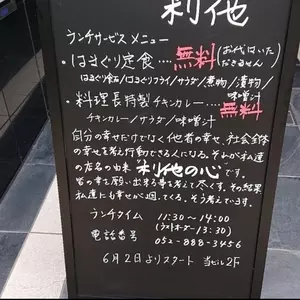 利他
ランチサービスメニュー
・はまぐり定食‥‥無料(お代はいただきません)
はまぐり鍋/はまぐりフライ/サラダ/煮物/漬物/味噌汁
・料理長特製チキンカレー‥‥無料
チキンカレー/サラダ/味噌汁
自分の幸せだけでなく他者の幸せ、社会全体
の幸せを考え行動できる人になる。そんな私達
の店名の由来 利他の心です。
皆の幸を願い、出来る事を考えて尽くす。その結果
私達にも幸せが廻ってくる。そう考えています。
ランチタイム 11:30〜14:00
(ラストオーダー13:30)
電話番号 052-888-3456
6月2日よりスタート 当ビル2F